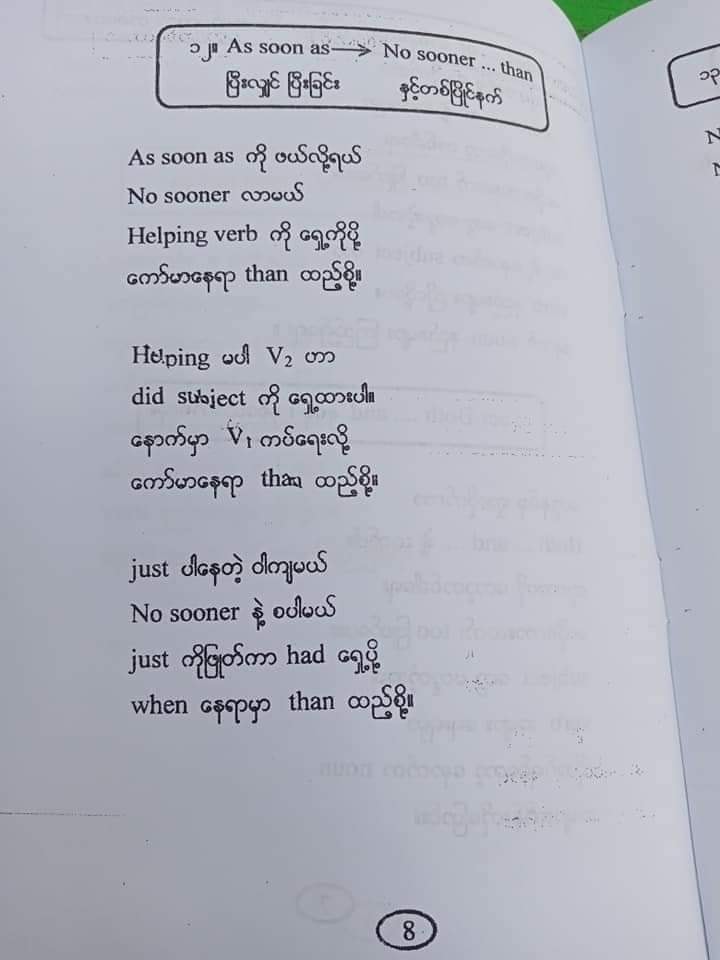 ၁၂။ As soon as → No sooner ... than
ပြီးလျှင် ပြီးခြင်း နှင့်တစ်ပြိုင်နက်
As soon as ကို ဖယ်လို့ရယ်
No sooner လာမယ်
Helping verb ကို ရှေ့ကိုပို့
ကော်မာနေရာ than ထည့်စို့။
Helping မပါ V₂ ဟာ
did subject ကို ရှေ့ထားပါ။
နောက်မှာ V₁ ကပ်ရေးလို့
ကော်မာနေရာ than ထည့်စို့။
just ပါနေတဲ့ ဝါကျမယ်
No sooner နဲ့ စပါမယ်
just ကိုဖြုတ်ကာ had ရှေ့ပို့
when နေရာမှာ than ထည့်စို့။
8
၁၃
N
N